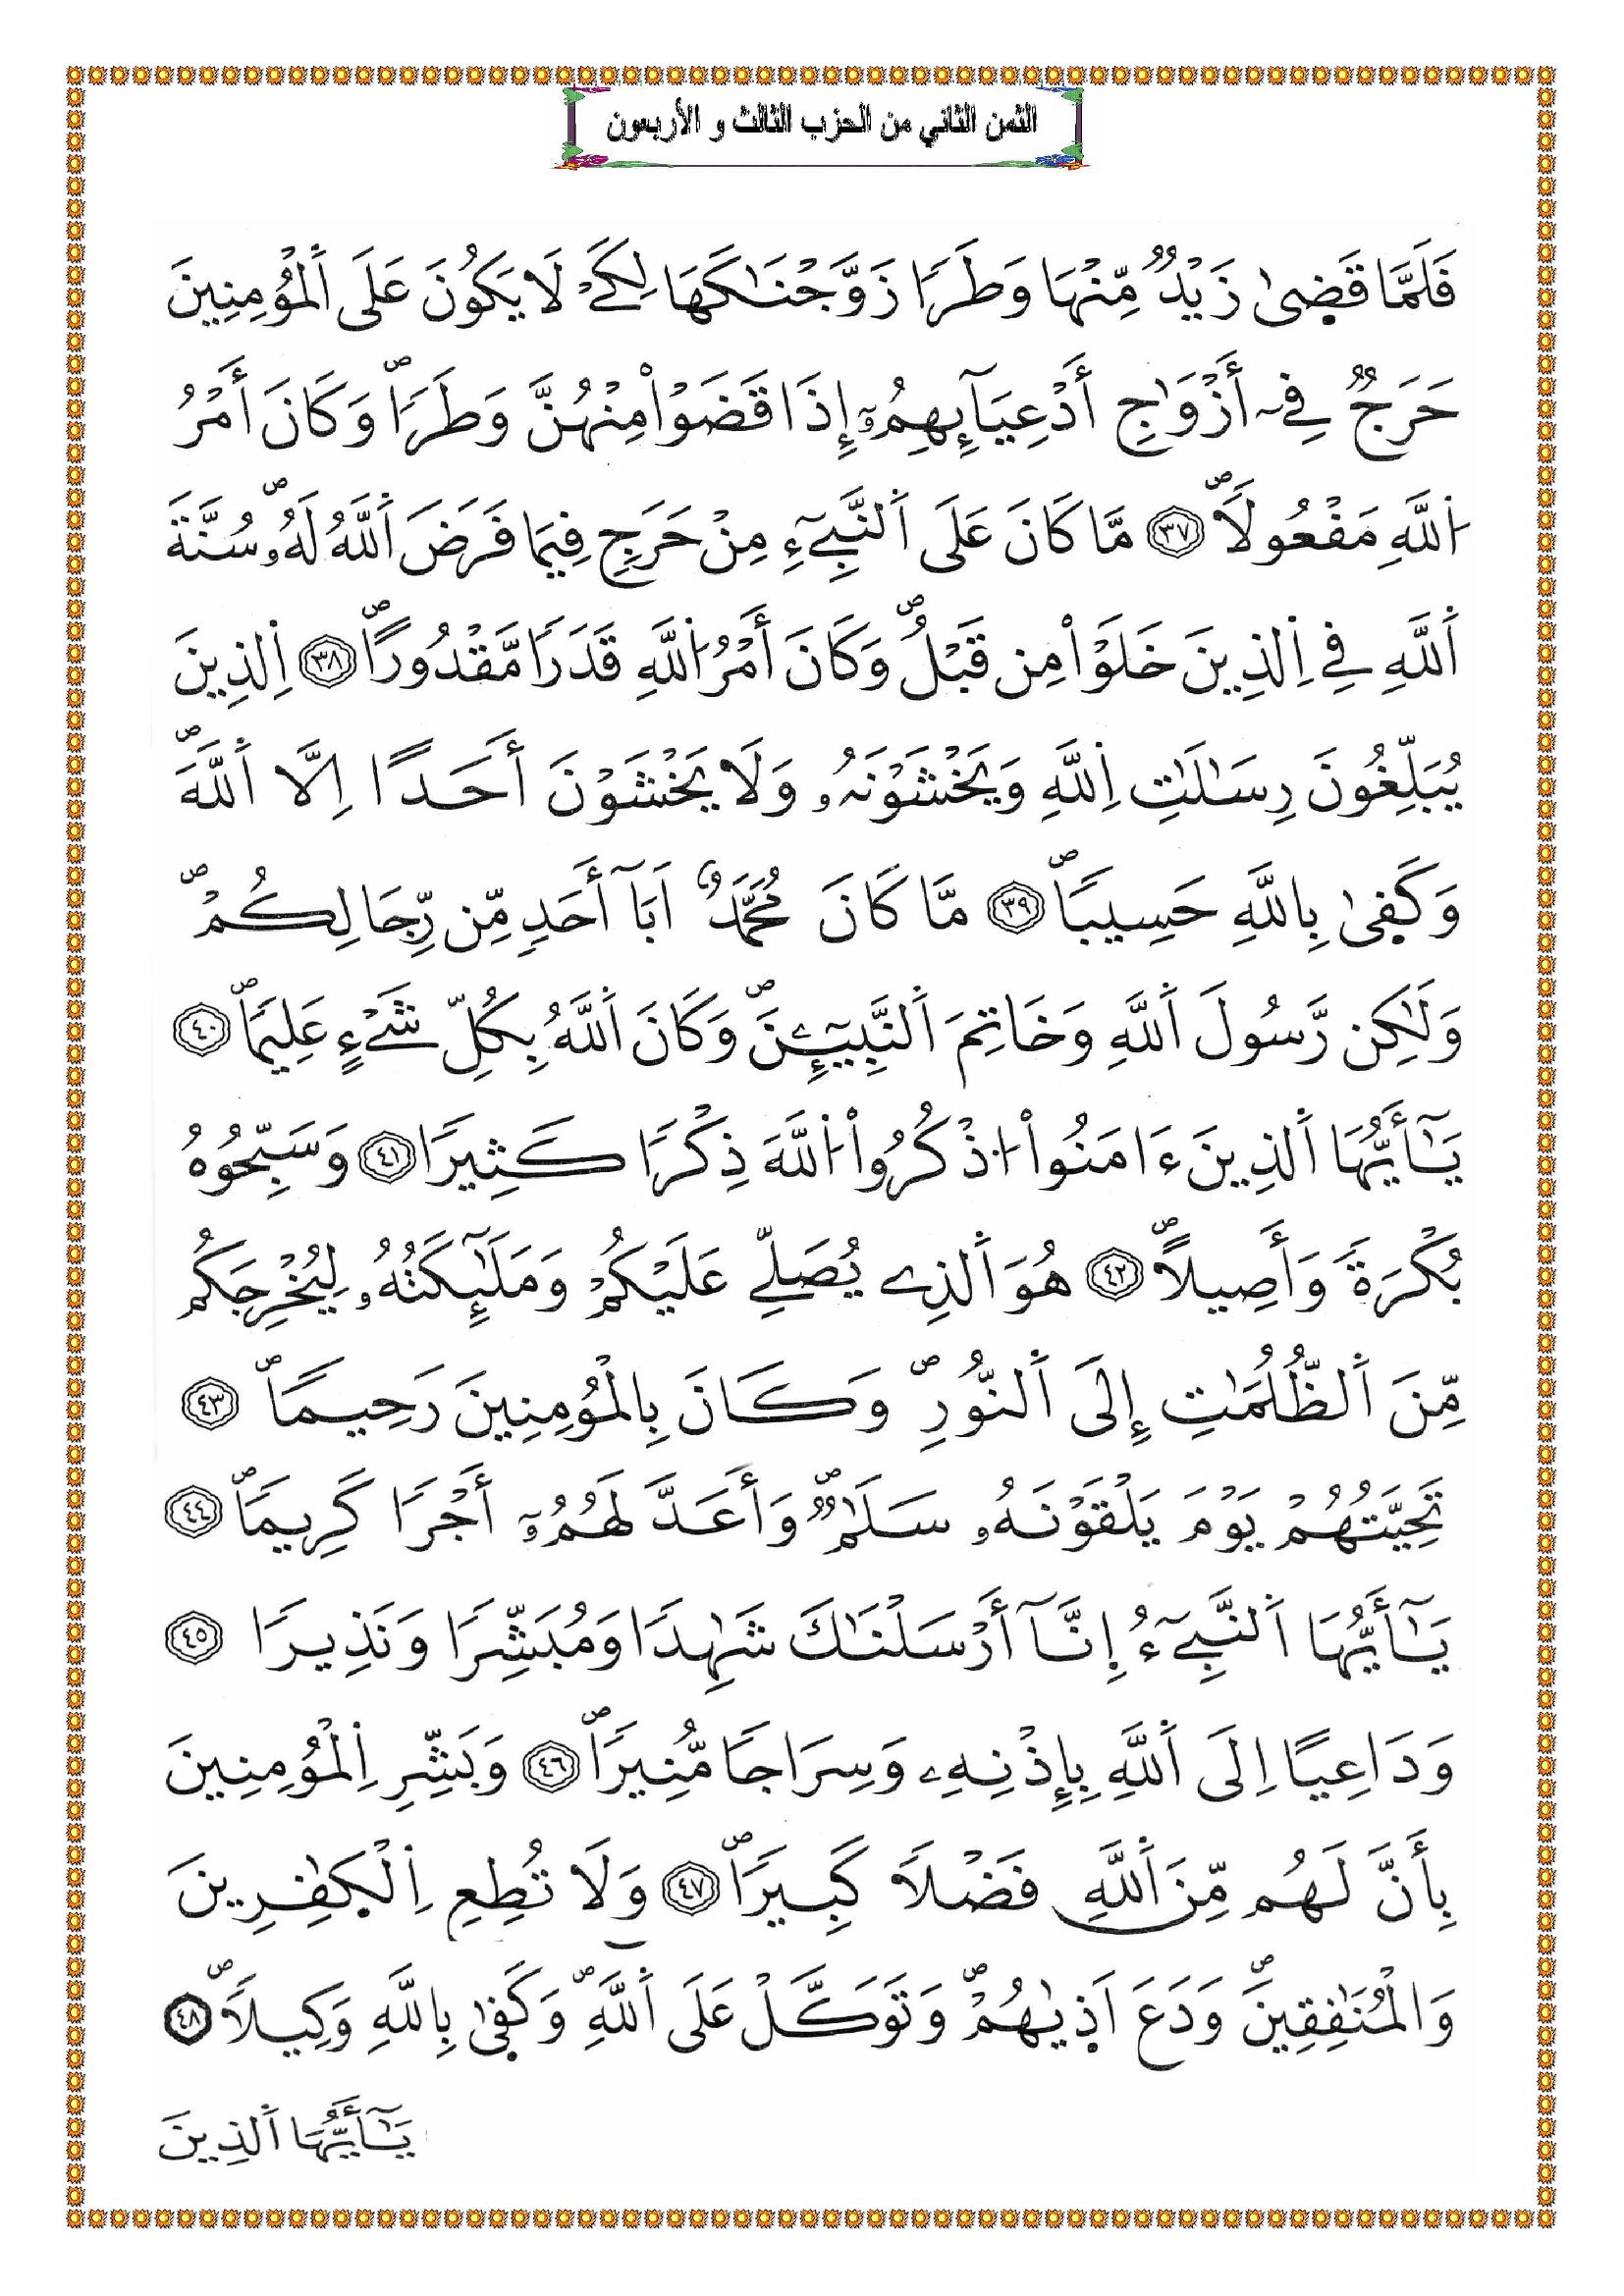 الثمن الثاني من الحزب الثالث و الأربعون
فَلَمَّا قَضٜىٰ زَيْدٞ مِّنْهَا وَطَرٗا زَوَّجْنَٰكَهَا لِكَےْ لَا يَكُونَ عَلَى اَ۬لْمُؤْمِنِينَ
حَرَجٞ فِےٓ أَزْوَٰجِ أَدْعِيَآئِهِمُۥٓ إِذَا قَضَوْاْ مِنْهُنَّ وَطَرٗاۖ وَكَانَ أَمْرُ
اُ۬للَّهِ مَفْعُولاٗۖ ٣٧ مَّا كَانَ عَلَى اَ۬لنَّبِےٓءِ مِنْ حَرَجٖ فِيمَا فَرَضَ اَ۬للَّهُ لَهُۥۖ سُنَّةَ
اَ۬للَّهِ فِے اِ۬لذِينَ خَلَوْاْ مِن قَبْلُۖ وَكَانَ أَمْرُ اُ۬للَّهِ قَدَرٗا مَّقْدُوراًۖ ٣٨ اِ۬لذِينَ
يُبَلِّغُونَ رِسَٰلَٰتِ اِ۬للَّهِ وَيَخْشَوْنَهُۥ وَلَا يَخْشَوْنَ أَحَداً اِلَّا اَ۬للَّهَۖ
وَكَفٜىٰ بِاللَّهِ حَسِيباٗۖ ٣٩ مَّا كَانَ مُحَمَّدٌ اَبَآ أَحَدٖ مِّن رِّجَالِكُمْۖ
وَلَٰكِن رَّسُولَ اَ۬للَّهِ وَخَاتِمَ اَ۬لنَّبِيٓـِٕينَۖ وَكَانَ اَ۬للَّهُ بِكُلِّ شَےْءٍ عَلِيماٗۖ ٤٠
يَٰٓأَيُّهَا اَ۬لذِينَ ءَامَنُواْ اُ۟ذْكُرُواْ اُ۬للَّهَ ذِكْرٗا كَثِيرٗا ٤١ وَسَبِّحُوهُ
بُكْرَةٗ وَأَصِيلاًۖ ٤٢ هُوَ اَ۬لذِے يُصَلِّے عَلَيْكُمْ وَمَلَٰٓئِكَتُهُۥ لِيُخْرِجَكُم
مِّنَ اَ۬لظُّلُمَٰتِ إِلَى اَ۬لنُّورِۖ وَكَانَ بِالْمُؤْمِنِينَ رَحِيماٗۖ ٤٣
تَحِيَّتُهُمْ يَوْمَ يَلْقَوْنَهُۥ سَلَٰمٞۖ وَأَعَدَّ لَهُمُۥٓ أَجْرٗا كَرِيماٗۖ ٤٤
يَٰٓأَيُّهَا اَ۬لنَّبِےٓءُ إِنَّآ أَرْسَلْنَٰكَ شَٰهِدٗا وَمُبَشِّرٗا وَنَذِيرٗا ٤٥
وَدَاعِياً اِلَى اَ۬للَّهِ بِإِذْنِهِۦ وَسِرَاجٗا مُّنِيرٗاۖ ٤٦ وَبَشِّرِ اِ۬لْمُؤْمِنِينَ
بِأَنَّ لَهُم مِّنَ اَ۬للَّهِ فَضْلاٗ كَبِيرٗاۖ ٤٧ وَلَا تُطِعِ اِ۬لْكٰٜفِرِينَ
وَالْمُنَٰفِقِينَۖ وَدَعَ اَذٜيٰهُمْۖ وَتَوَكَّلْ عَلَى اَ۬للَّهِۖ وَكَفٜىٰ بِاللَّهِ وَكِيلاٗۖ ٤٨
يَٰٓأَيُّهَا اَ۬لذِينَ